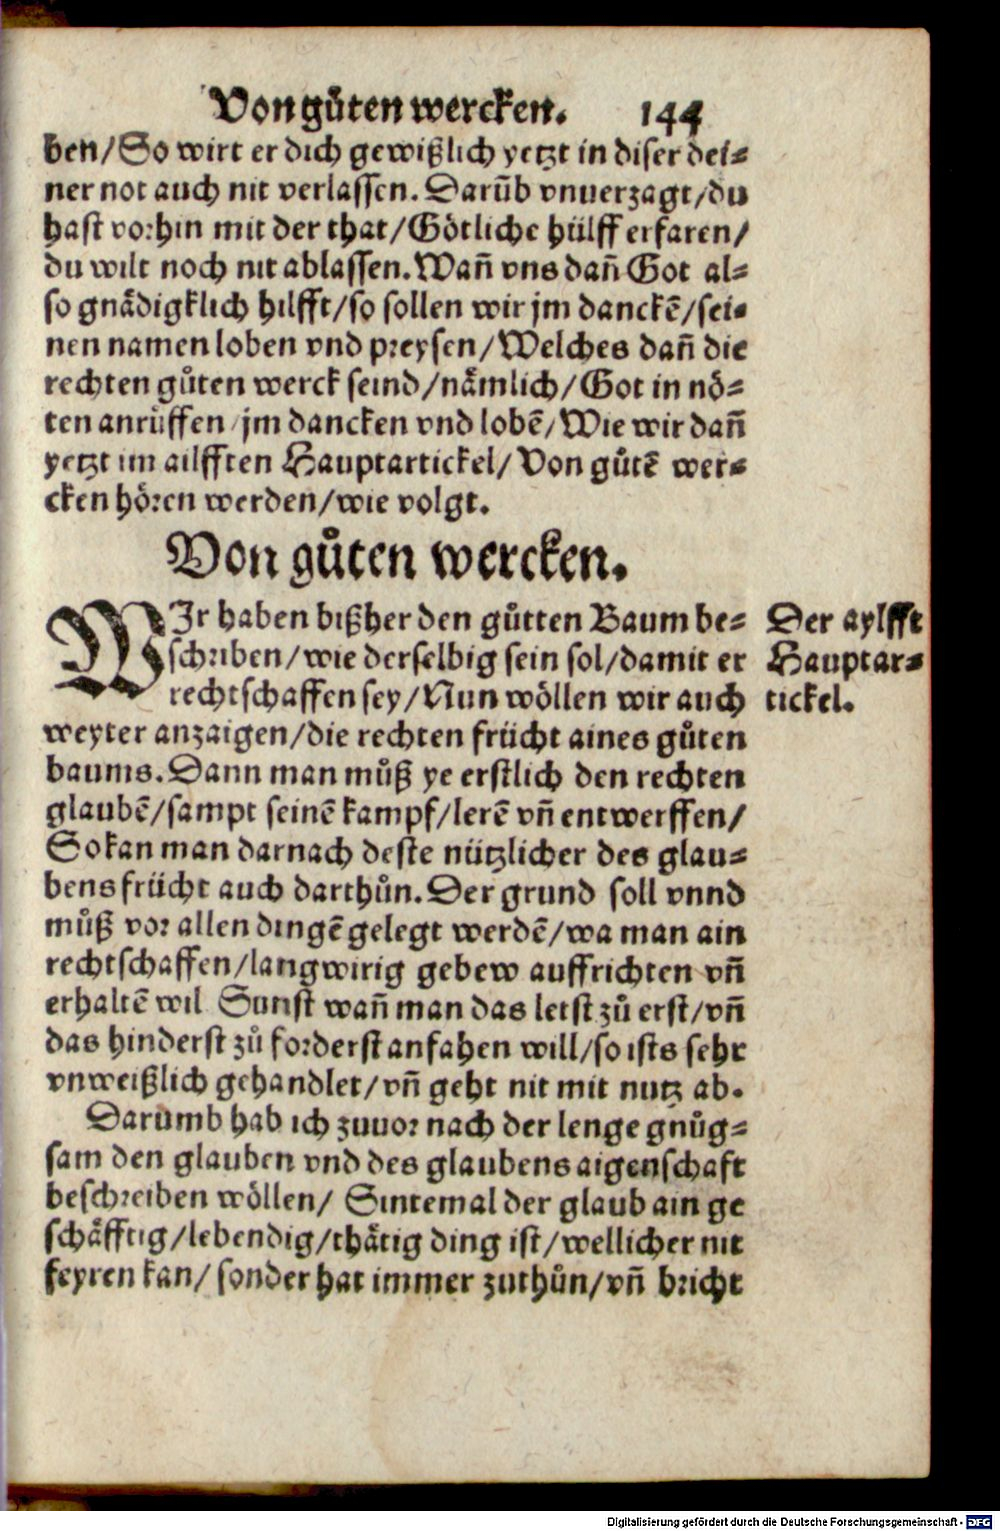 Von gůten wercken. 144
ben/So wirt er dich gewißlich yetzt in diser dei⸗
ner not auch nit verlassen. Darũb vnuerzagt/du
hast vorhin mit der that/Götliche hülff erfaren/
du wilt noch nit ablassen. Wañ vns dañ Got al⸗
so gnädigklich hilfft/so sollen wir jm danckẽ/sei⸗
nen namen loben vnd preysen/Welches dañ die
rechten gůten werck seind/nämlich/Got in nö⸗
ten anrüffen/jm dancken vnd lobẽ/Wie wir dañ
yetzt im ailfften Hauptartickel/Von gůtẽ wer⸗
cken hören werden/wie volgt.
Von gůten wercken.
WJr haben bißher den gůtten Baum be⸗
schriben/wie derselbig sein sol/damit er
rechtschaffen sey/Nun wöllen wir auch
weyter anzaigen/die rechten frücht aines gůten
baums. Dann man můß ye erstlich den rechten
glaubẽ/sampt seinẽ kampf/lerẽ vñ entwerffen/
So kan man darnach deste nützlicher des glau⸗
bens frücht auch darthůn. Der grund soll vnnd
můß vor allen dingẽ gelegt werdẽ/wa man ain
rechtschaffen/langwirig gebew auffrichten vñ
erhaltẽ wil Sunst wañ man das letst zů erst/vñ
das hinderst zů forderst anfahen will/so ists sehr
vnweißlich gehandlet/vñ geht nit mit nutz ab.
Darumb hab ich zuuor nach der lenge gnůg⸗
sam den glauben vnd des glaubens aigenschaft
beschreiben wöllen/ Sintemal der glaub ain ge
schäfftig/lebendig/thätig ding ist/wellicher nit
feyren kan/ sonder hat immer zuthůn/vñ bricht
Der aylfft
Hauptar⸗
tickel.
Digitalisierung gefördert durch die Deutsche Forschungsgemeinschaft - DFG